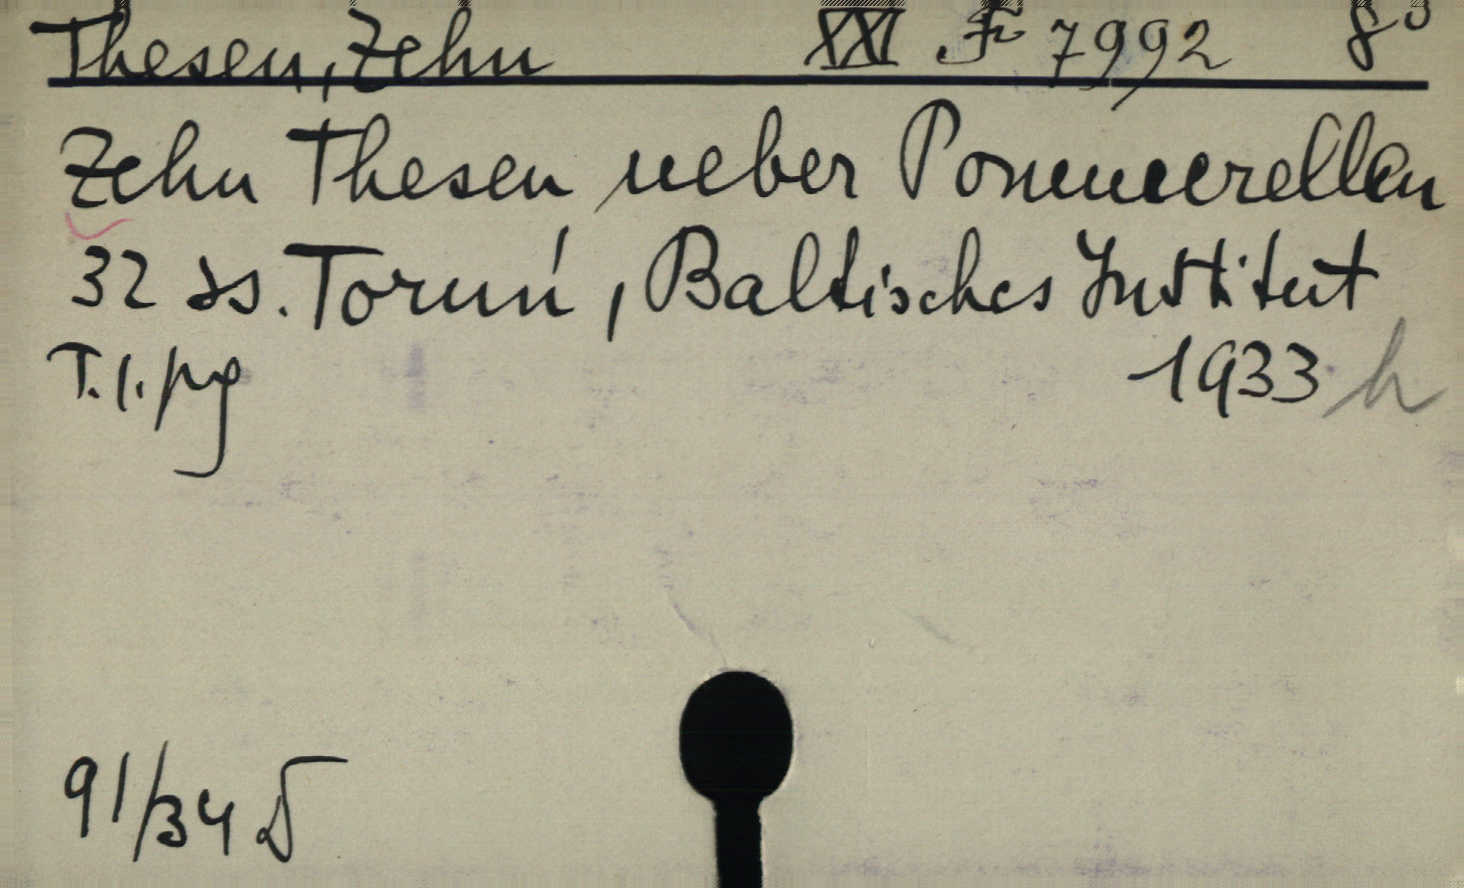 Thesen, Zehn XXI F 7992 8°
Zehn Thesen ueber Pommerellen
32 ss. Toruń, Baltisches Institut
T.1.pg 1933 h
91/34 D